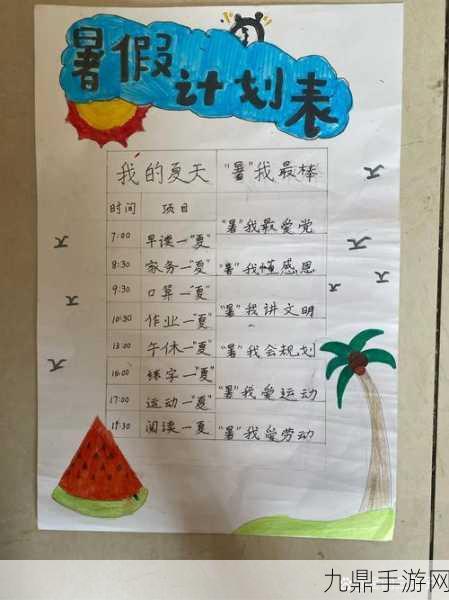 暑假计划表
我的夏天 "暑"我最棒
时间 项目
"暑"我最爱党
7:00 早读一"夏"
8:30 家务一"夏" "暑"我懂感恩
9:30 口算一"夏"
"暑"我讲文明
10:30 作业一"夏"
13:00 午休一"夏" "暑"我会规划
16:00 练字一"夏"
"暑"我爱运动
17:00 运动一"夏"
19:30 阅读一夏 "暑"我爱劳动
九鼎手游网